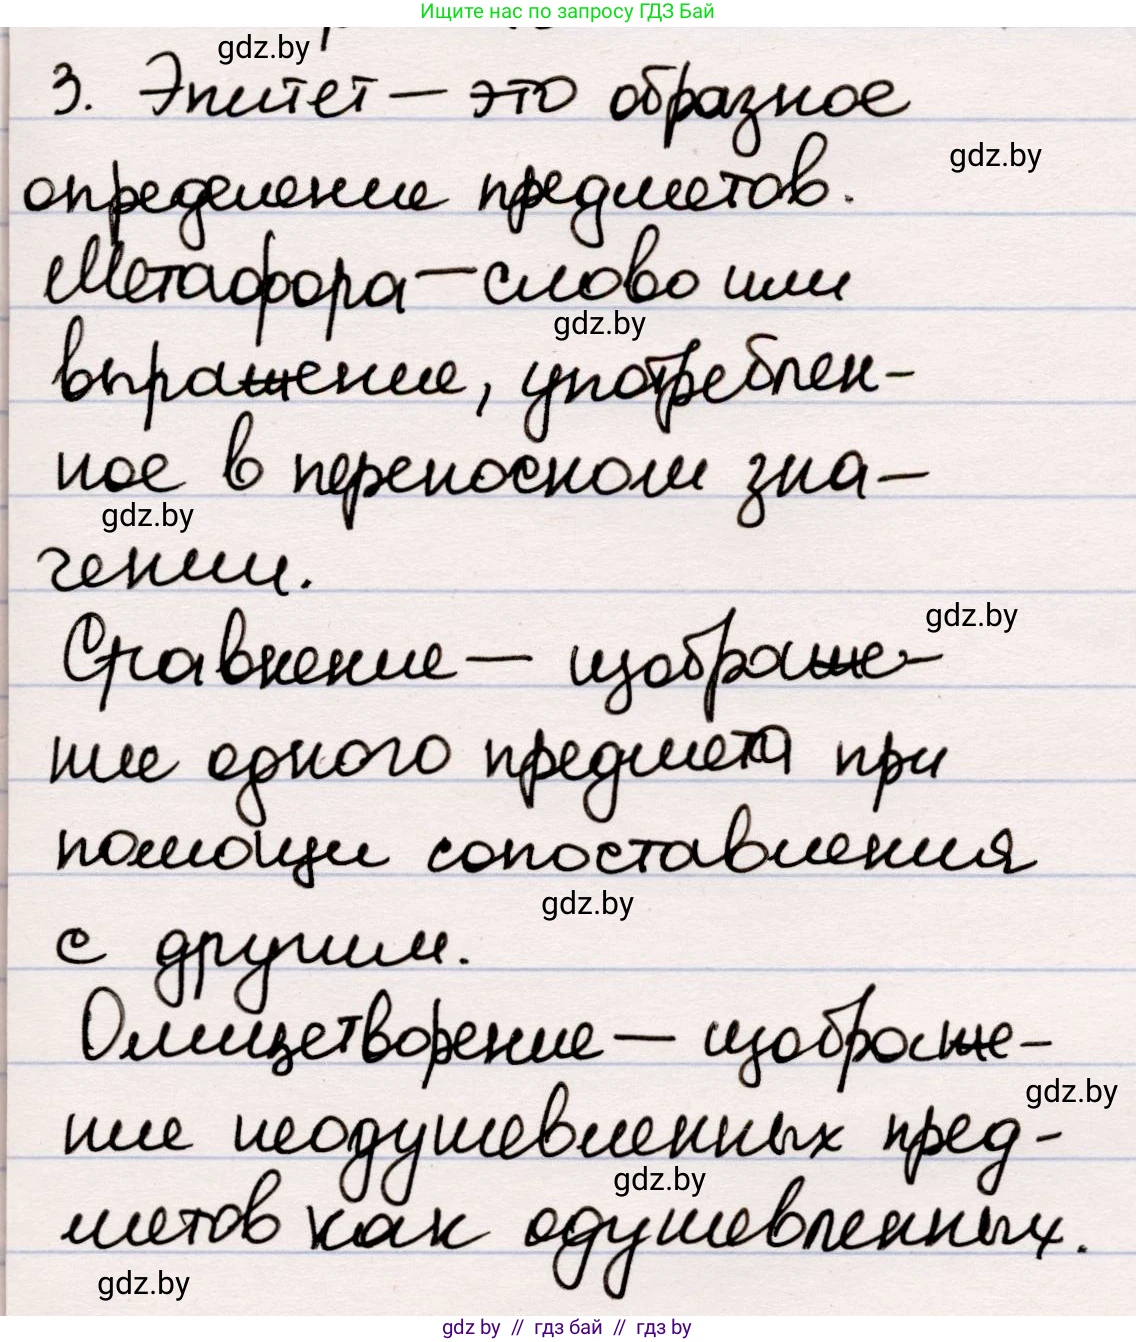 Ищите нас по запросу ГДЗ Бай
gdz.by
3. Эпитет — это образное
gdz.by
определение предметов.
Метафора — слово или
gdz.by
выражение, употреблен-
ное в переносном зна-
gdz.by
чении.
gdz.by
Сравнение — изображе-
ние одного предмета при
помощи сопоставления
gdz.by
с другим.
Олицетворение — изображе-
gdz.by
ние неодушевленных пред-
gdz.by
метов как одушевленных.
gdz.by
gdz by // гдз бай // гдз by